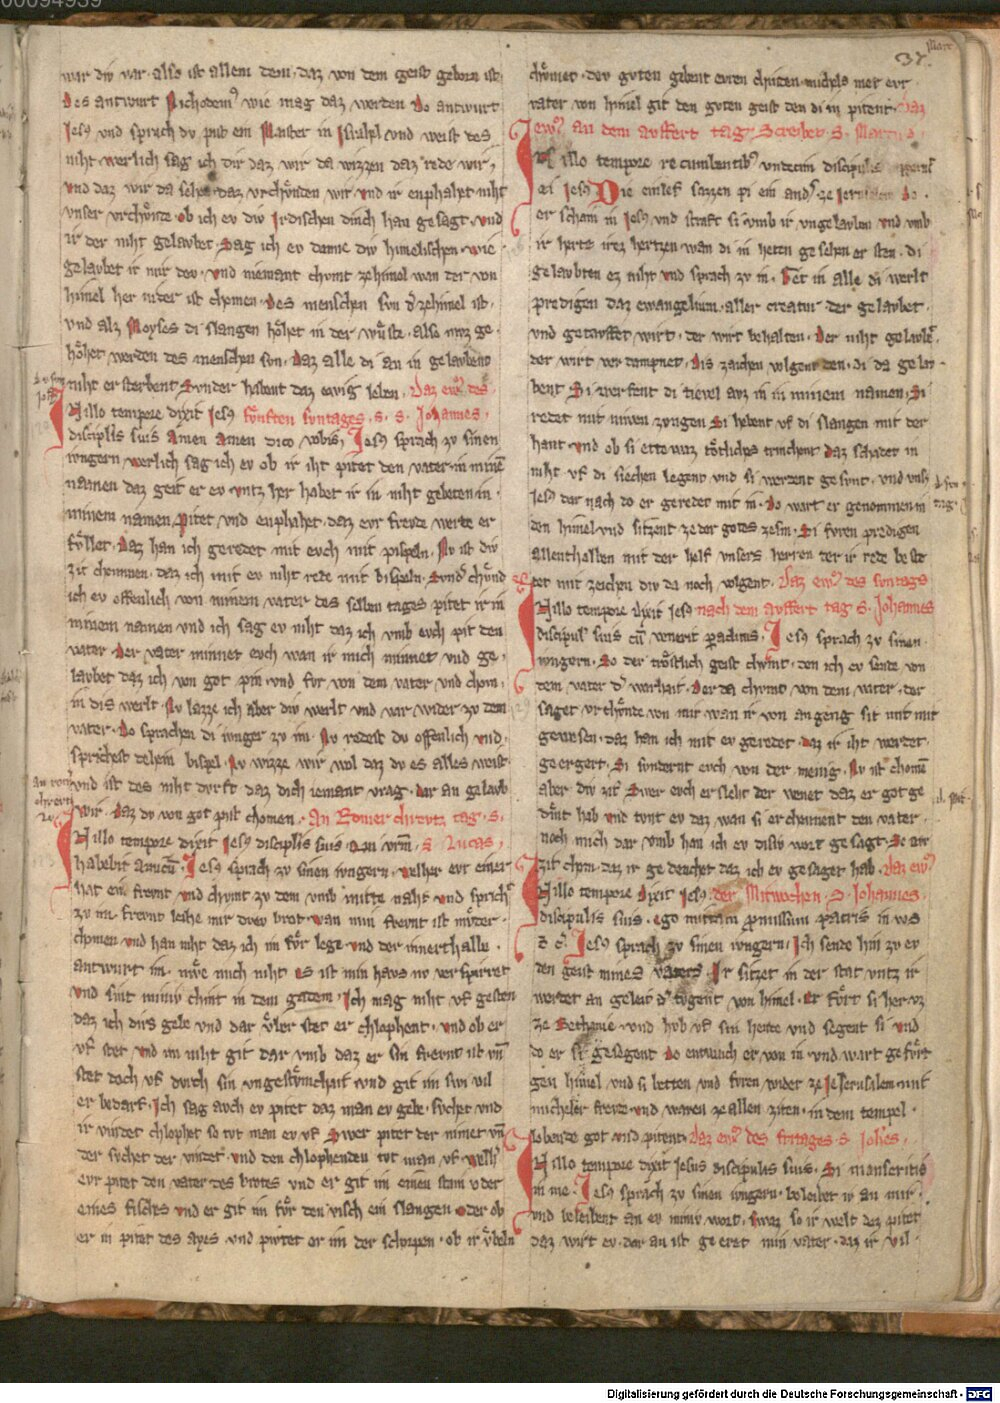 00094939
Marc
37.
war div war · also ist allem dem · daz von dem geist geborn ist ·
Des antwurt Nichodem9 wie mag daz werden Do antwurt
Jesus vnd sprach dv pist ein Maister in Israhel vnd weist des
niht werlich sag ich dir daz wir da wizzen daz rede wir ·
vnd daz wir da sehen daz vrchvnden wir vnd ir enphahet niht
vnser vrchvnde · ob ich ev div Irdischen dinch han gesagt · vnd
ir der niht gelaubet · Sag ich ev danne div himelischen · wie
gelaubet ir mir dev · vnd niemant chvmt zehimel wan der von
himel her nider ist chomen · Des menschen svn der zehimel ist ·
vnd alz Moyses di slangen hohet in der wuste · also muz ge ·
hohet werden des menschen son · Daz alle di an in gelaubend
niht ersterbent Svnder habent daz ewig leben · Daz ewang des
In illo tempore dixit Jesus funften suntages · s · s · Johannes ·
discipulis suis Amen Amen dico vobis · Jesus sprach zv sinen
iungern werlich sag ich ev ob ir iht pitet den vater in minem
namen daz geit er ev · vntz her habet ir in niht gebeten in ·
minem namen · Pitet vnd enphahet · daz evr frevde werde er
fullet · Daz han ich geredet mit evch mit pispeln · Nv ist div
zit chomen · daz ich mit ev niht rede mit bispeln · Svnder chvnd
ich ev offenlich von minem vater des selben tages pitet ir in
minem namen vnd ich sag ev niht daz ich vmb evch pit den
vater · Der vater minnet evch wan ir mich minnet vnd ge ·
laubet daz ich von got pin · vnd fvr von dem vater vnd chom ·
in dis werlt · Nv lazze ich aber div werlt vnd var wider zv dem
vater · Do sprachen di iunger zv im · Nv redest dv offenlich vnd ·
sprichest dehein bispel · Nv wizze wir wol daz dv es alles weist
vnd ist des niht durft daz dich iemant vrag · dar an gelaub
wir · daz dv von got pist chomen · An Romer chrevtz tag · S ·
In illo tempore dixit Jesus discipulis suis Quis vestrum · S Lucas ·
habebit amicum · Jesus sprach zv sinen iungern · Welher evr einer
hat ein frevnt vnd chvmt zv dem vmb mitte naht · vnd sprichet
zv im frevnt leihe mir drev brot · wan min frevnt ist muder ·
chomen vnd han niht daz ich im fur lege · vnd der innerthalbe ·
antwurt im · mve mich niht es ist min haus nv versperret
vnd sint miniv chint in dem gadem · Ich mag niht vf gesten
daz ich dirs gebe vnd dar vber stet er chlophent · vnd ob er
vf stet vnd im niht git dar vmb daz er sin frevnt ist vnd
stet doch vf durch sin vngestvmchait vnd git im swi vil
er bedarf · Ich sag avch ev pitet daz man ev gebe · suchet vnd
ir vindet chlophet so tvt man ev vf · Swer pitet der nimet vnd
der suchet der vindet · vnd den chlophenden tvt man vf · Welher
evr pitet den vater des brotes vnd er git im einen stain oder
eines fisches vnd er git im fur den visch ein slangen · oder ob
er in pitet des ayes · vnd pivtet er im der schorpen · ob ir vbeln
chonnet · dev guten gebent evren chinden · michels mer evr
vater von himel git den guten geist den di in pitent · Daz
ewang an dem auffert tag Screibet S · Marcus ·
In illo tempore recumbentibus undecim discipulis apparuit
ei Jesus Die einlef sazzen pi ein ander ze Jerusalem do ·
er schain in Jesus vnd straft si vmb ir vngelauben vnd vmb
ir herte irez hertzen wan di in heten gesehen er sten · di
gelaubten ez niht vnd sprach zv in · Get in alle di werlt
predigen daz ewangelium · aller creatur der gelaubet ·
vnd getauffet wirt · der wirt behalten · Der niht gelaubet
der wirt verdampnet · Dis zaichen volgent den · di da gelau-
bent Si werfent di tievel avz in in minem namen · Si
redet mit niwen zungen Si hebent vf di slangen mit der
hant · vnd ob si ettewaz totliches trinchent daz schadet in
niht vf di siechen legent vnd si werdent gesunt · vnd vnser
Jesus dar nach do er geredet mit in · do wart er genommen in
den himel vnd sitzent ze der gotes zesm · Si furen predigen
allenthalben mit der helf vnsers herren der ir rede beste
tet mit zeichen div da noch volgent · Daz ewang des suntags
In illo tempore dixit Jesus nach dem auffert tag S · Johannes
discipulis suis cum venerit paraclitus · Jesus sprach zv sinen ·
iungern · So der trostlich geist chvmt · den ich ev sende von
dem vater der warhait · Der da chvmt von dem vater · der
saget vrchvnde von mir wan ir von angeng sit mit mir
gewesen · daz han ich mit ev geredet · Daz ir iht werdet ·
geergert · Si sundernt evch von der menig · Nv ist chomen
aber div zit Swer evch ersleht der wenet daz er got ge
dint hab vnd tunt ev daz wan si erchennent den vater ·
noch mich dar vmb han ich ev disiv wort gesagt · So dir
zit chom · daz ir gedenchet daz ich ev gesaget hab · Daz ewang
In illo tempore dixit Jesus · der Mitwochen · S · Johannes ·
discipulis suis · ego mittam promissum patris in vos
Jesus sprach zv sinen iungern · Ich sende hin zv ev
den geist mines vaters Ir sitzet in der stat vntz ir
werdet an geleit der tvgent von himel · Er furt si her vz
ze Bethanie · vnd hvb vf sin hende vnd segent si vnd
do er si gesegent Do entwaich er von in · vnd wart gefurt
gen himel vnd si betten vnd furen wider ze Jerusalem mit
micheler frevde · vnd waren ze allen ziten · in dem tempel ·
lobende got vnd pitent · Daz ewang des fritages S Johes ·
In illo tempore dixit Jesus discipulis suis · Si manseritis
in me · Jesus sprach zv sinen iungern · beleibet ir an mir ·
vnd beleibent an ev miniv wort · Swaz so ir welt dez pitet
daz wirt ev · dar an ist geeret min vater · daz ir vil ·
Digitalisierung gefördert durch die Deutsche Forschungsgemeinschaft - DFG